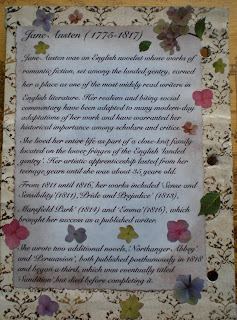 Jane Austen (1775-1817)
Jane Austen was an English novelist whose works of
romantic fiction, set among the landed gentry, earned
her a place as one of the most widely read writers in
English literature. Her realism and biting social
commentary have been adapted to many modern-day
adaptations of her work and have warranted her
historical importance among scholars and critics.
She lived her entire life as part of a close-knit family
located on the lower fringes of the English landed
gentry. Her artistic apprenticeship lasted from her
teenage years until she was about 35 years old.
From 1811 until 1816, her works included 'Sense and
Sensibility'(1811), 'Pride and Prejudice' (1813),
'Mansfield Park' (1814) and 'Emma'(1816), which
brought her success as a published writer.
She wrote two additional novels, 'Northanger Abbey'
and 'Persuasion', both published posthumously in 1818
and began a third, which was eventually titled
'Sanditon', but died before completing it.